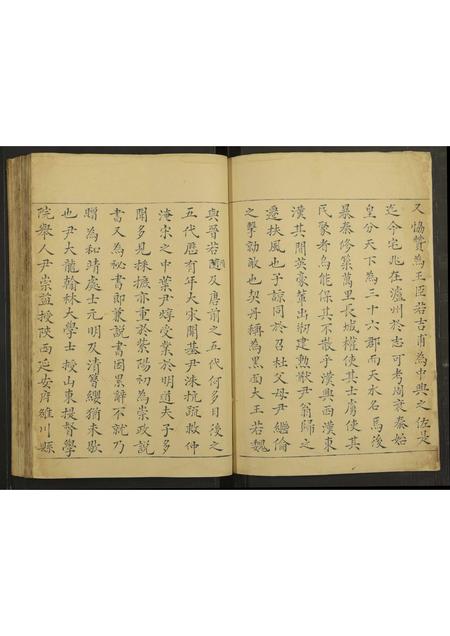 又恊贊為王臣若吉甫為中興之佐是
迄今宅兆在瀘州於志可考周衰秦始
皇分天下為三十六郡而天水名焉後
暴秦修築萬里長城權使其士虜使其
民聚者烏能保其不散乎漢興西漢東
漢其間英豪輩出剏建勲猷尹翁歸之
遷扶風也予諒同於召杜父母尹繼倫
之擊勍敵也契丹稱為黑面大王若魏
與晉若隨及唐前之五代何多日後之
五代歷有年大宋開基尹洙抗疏救仲
淹宋之中葉尹焞受業於明道夫子多
聞多見採摭亦重於紫陽初為崇政說
書又為秘書郎兼說書因累辭不就乃
贈為和靖處士元明及清簪纓猶未歇
也尹大龍翰林大學士授山東提督學
院舉人尹崇益授陝西延安府雒川縣